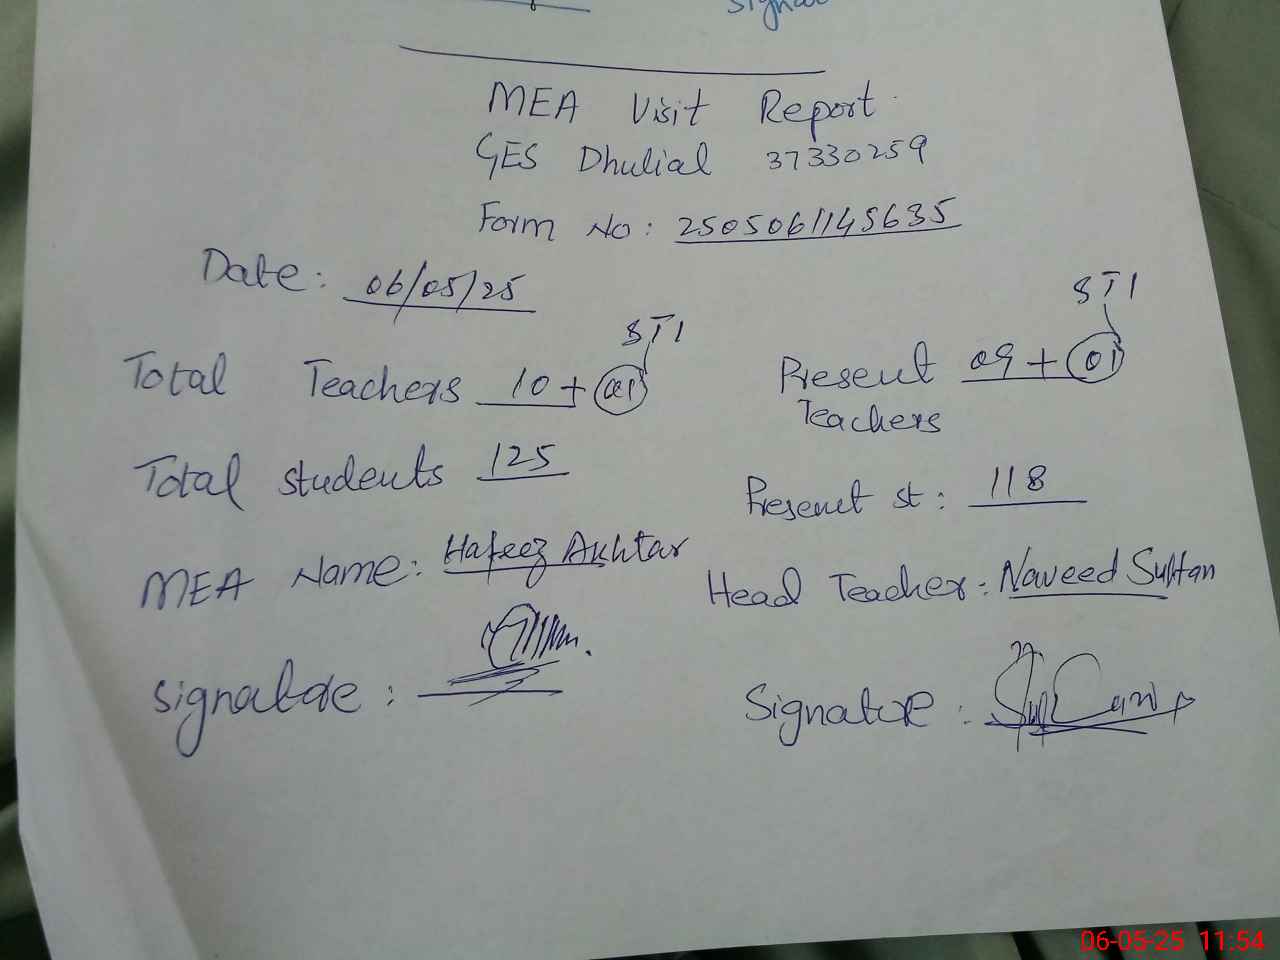 Signat
MEA Visit Report
GES Dhulial 37330259
Form No: 2505061145635
Date: 06/05/25
STI
STI
Total Teachers 10 + 01
Present 09 + 01
Teachers
Total students 125
Present st: 118
MEA Name: Hafeez Akhtar
Head Teacher: Naveed Sultan
Signature:
Signature:
06-05-25 11:54